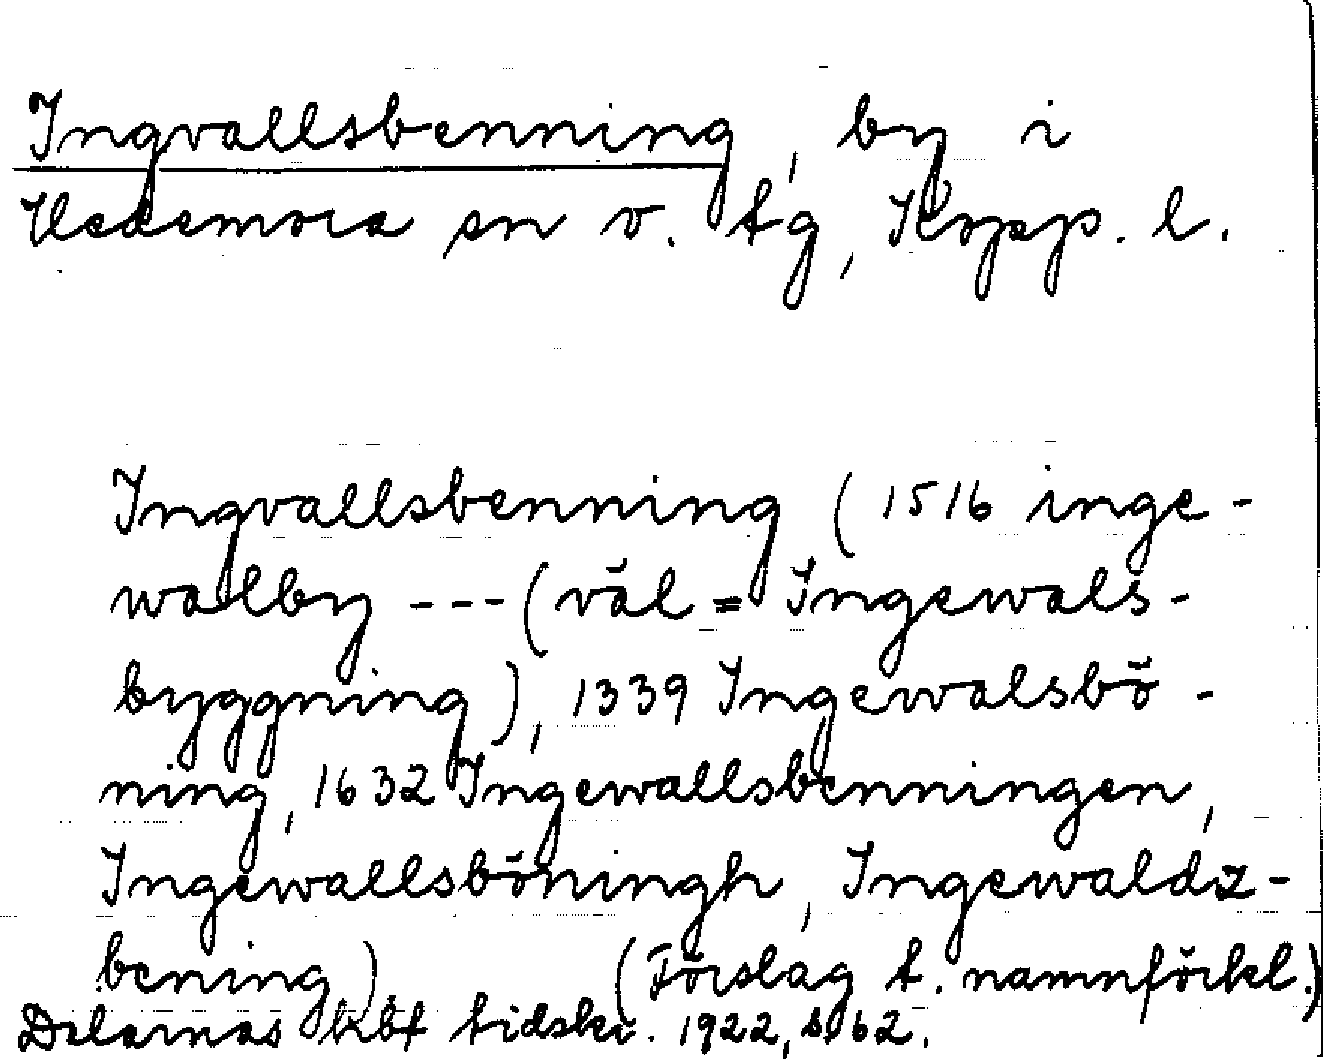 Ingvallsbenning, by i
Hedemora sn v. tg, Kopp. l.
Ingvallsbenning (1516 inge-
walby --- (väl = Ingewals-
byggning), 1339 Ingewalsbö-
ning, 1632 Ingewallsbenningen,
Ingewallsböningh, Ingewaldz-
bening). (Förslag t. namnförkl.)
Dalarnas hbf tidskr. 1922, s. 62.